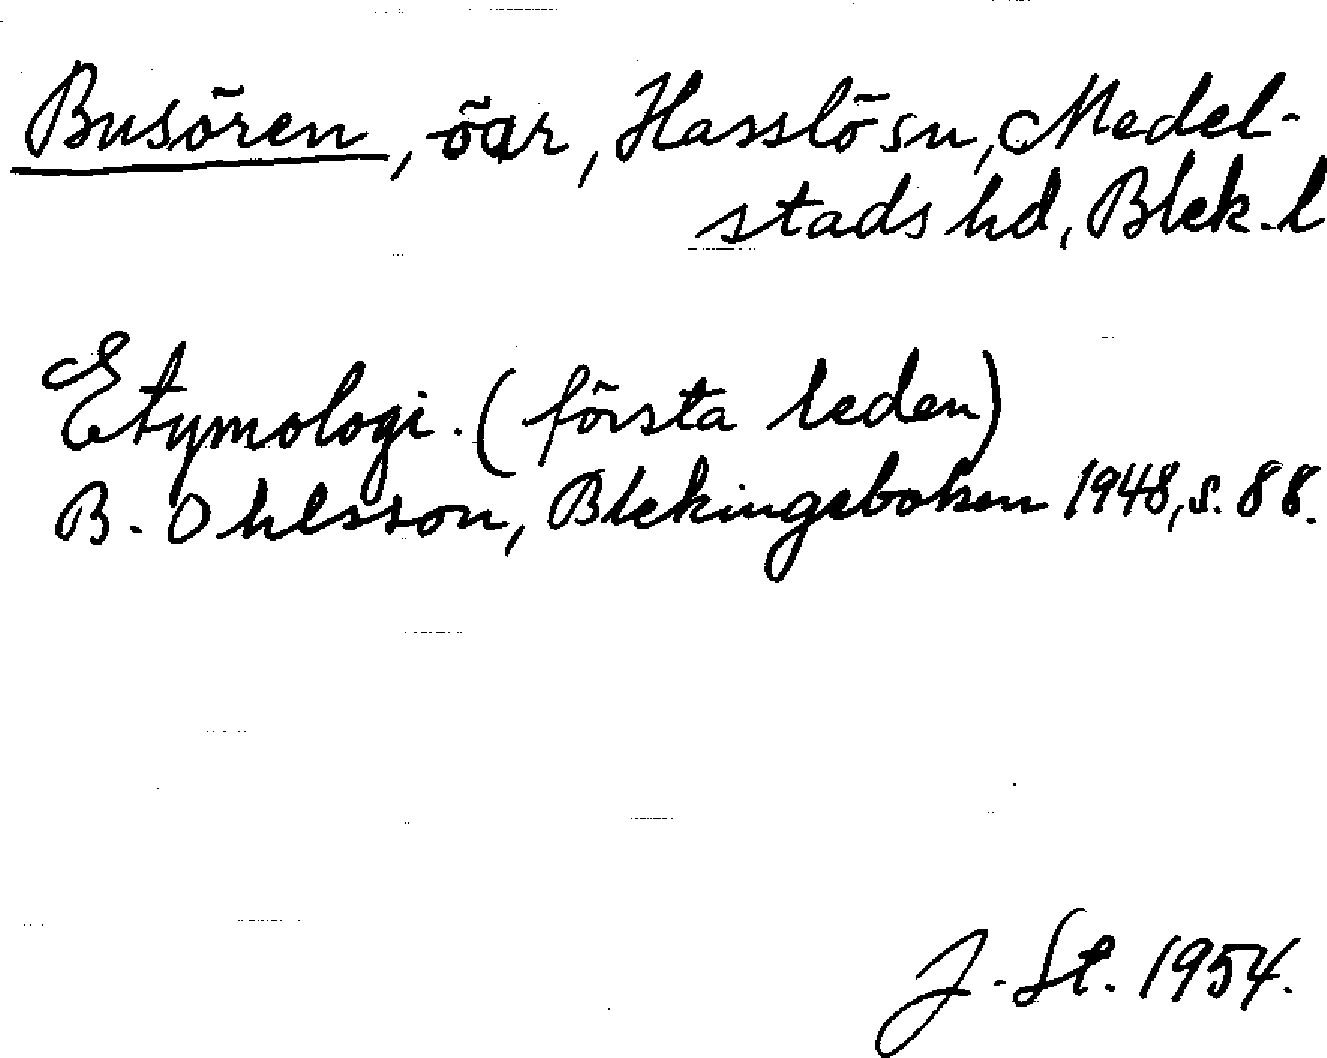 Busören, öar, Hasslö sn, Medel-
stads hd, Blek. l
Etymologi. (första leden)
B. Ohlsson, Blekingeboken 1948, s. 88.
J. St. 1954.